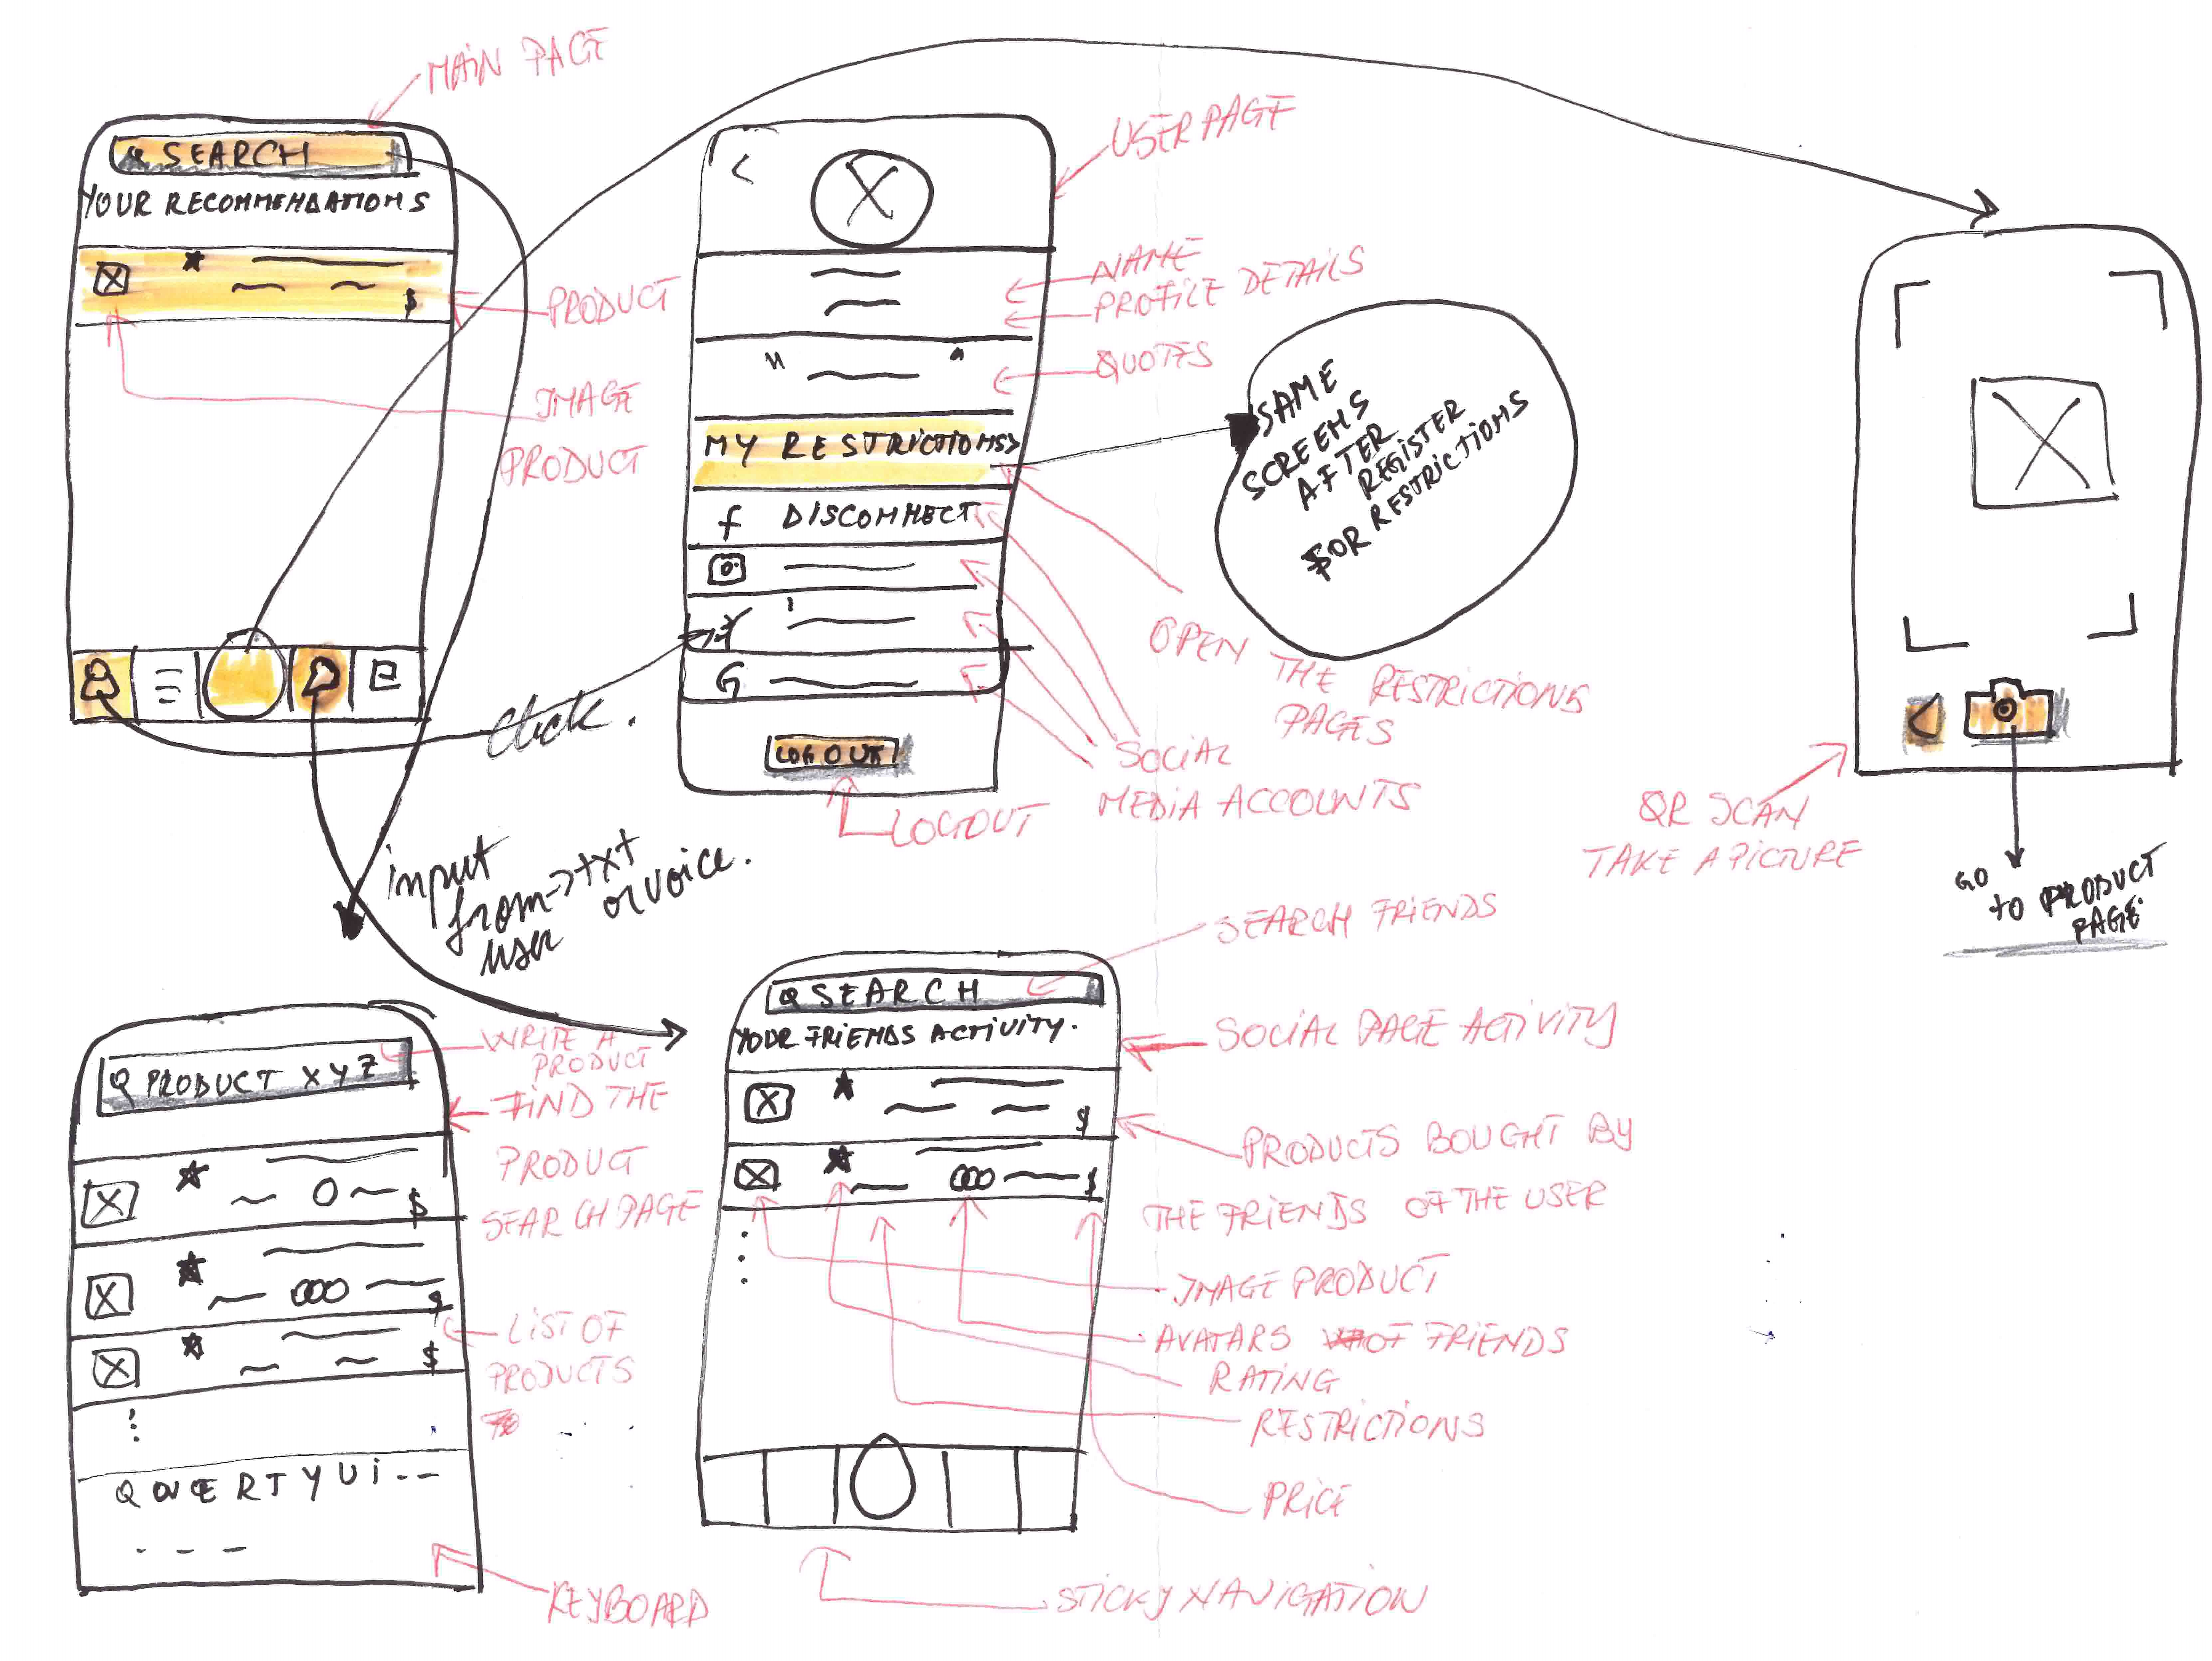 MAIN PAGE
SEARCH
YOUR RECOMMENDATIONS
$
PRODUCT
IMAGE
PRODUCT
click.
USER PAGE
<
X
NAME
PROFILE DETAILS
" "
QUOTES
MY RESTRICTIONS>
f DISCONNECT
G
LOGOUT
LOGOUT
SAME
SCREENS
AFTER
REGISTER
FOR RESTRICTIONS
OPEN
THE RESTRICTIONS
PAGES
SOCIAL
MEDIA ACCOUNTS
QR SCAN
TAKE A PICTURE
GO
to PRODUCT
PAGE
input
from → txt
user or voice.
PRODUCT XYZ
WRITE A
PRODUCT
FIND THE
PRODUCT
SEARCH PAGE
$
$
$
LIST OF
PRODUCTS
QWERTYUi--
- - -
KEYBOARD
SEARCH FRIENDS
SEARCH
YOUR FRIENDS ACTIVITY.
SOCIAL PAGE ACTIVITY
$
PRODUCTS BOUGHT BY
THE FRIENDS OF THE USER
$
IMAGE PRODUCT
AVATARS OF FRIENDS
RATING
RESTRICTIONS
PRICE
STICKY NAVIGATION